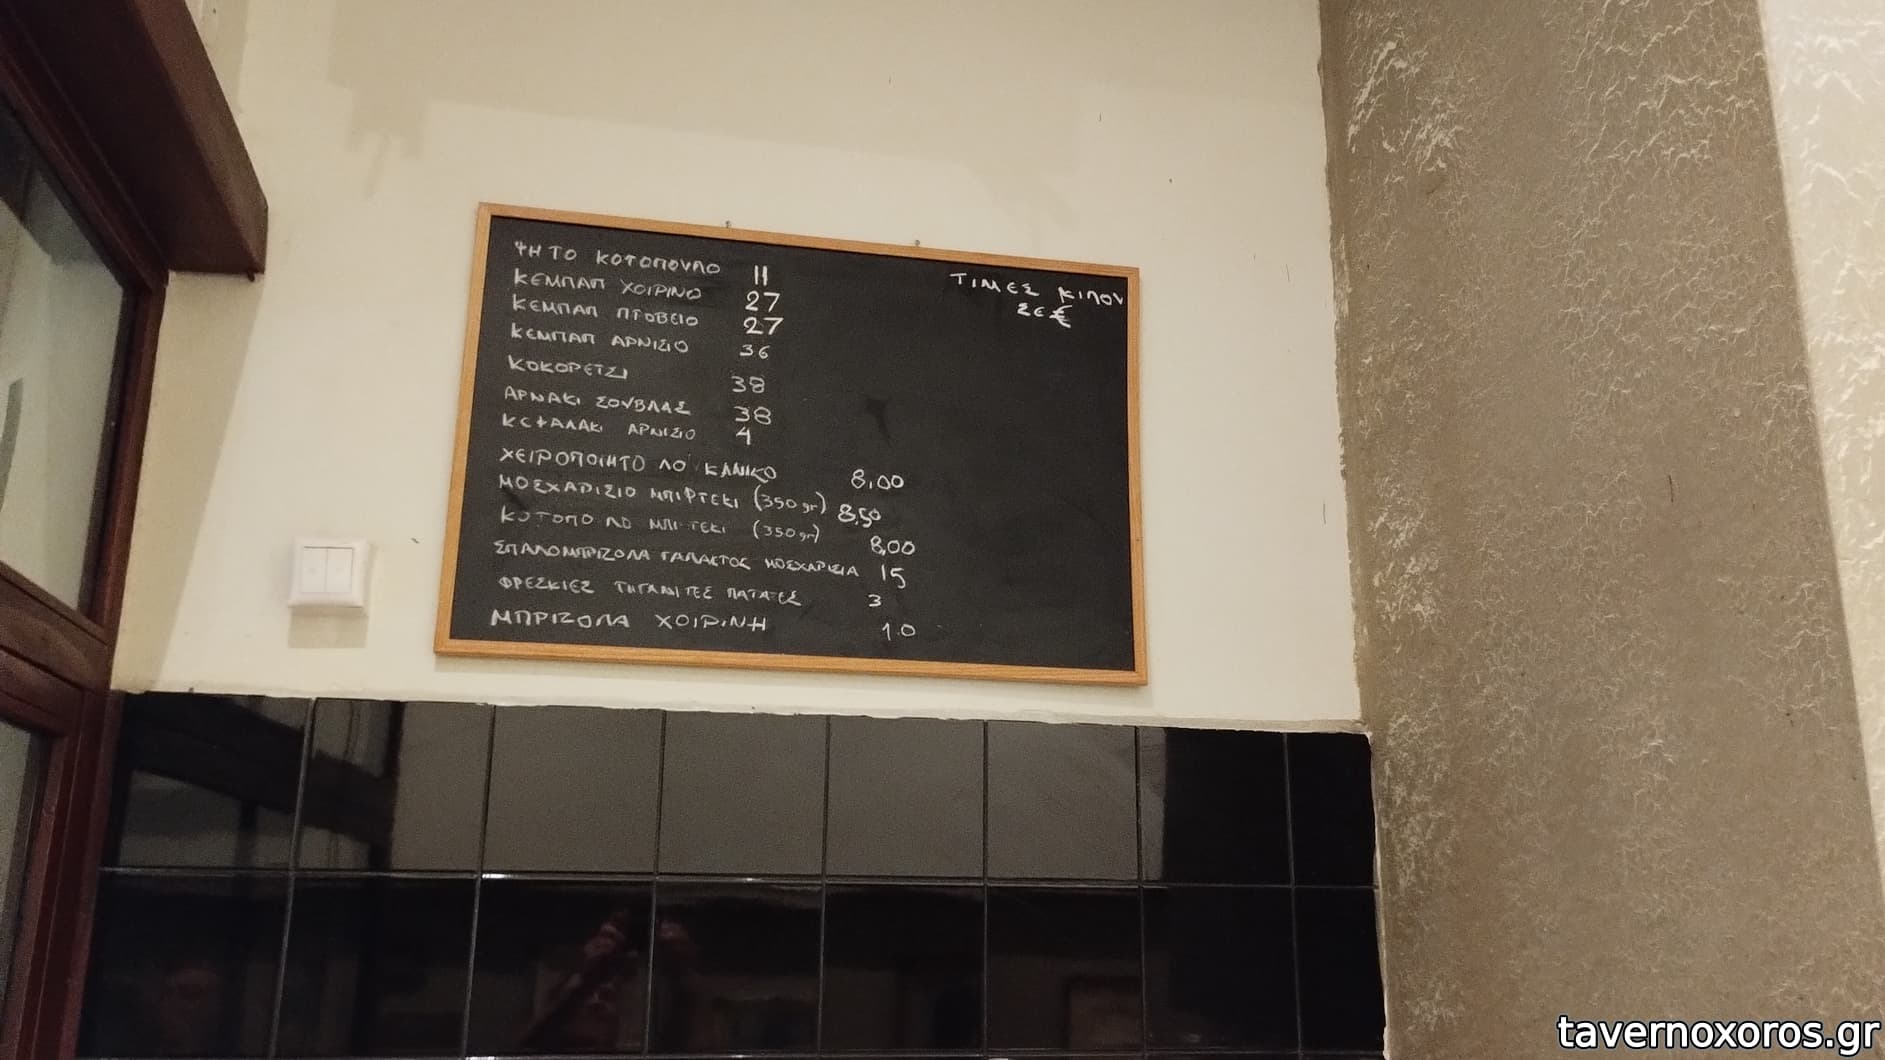 ΨΗΤΟ ΚΟΤΟΠΟΥΛΟ 11
ΚΕΜΠΑΠ ΧΟΙΡΙΝΟ 27
ΚΕΜΠΑΠ ΠΡΟΒΕΙΟ 27
ΚΕΜΠΑΠ ΑΡΝΙΣΙΟ 36
ΚΟΚΟΡΕΤΣΙ 38
ΑΡΝΑΚΙ ΣΟΥΒΛΑΣ 38
ΚΕΦΑΛΑΚΙ ΑΡΝΙΣΙΟ 4
ΧΕΙΡΟΠΟΙΗΤΟ ΛΟΥΚΑΝΙΚΟ 8,00
ΜΟΣΧΑΡΙΣΙΟ ΜΠΙΦΤΕΚΙ (350 gr) 8,50
ΚΟΤΟΠΟ ΛΟ ΜΠΙ ΤΕΚΙ (350 gr) 8,00
ΣΠΑΛΟΜΠΡΙΖΟΛΑ ΓΑΛΑΚΤΟΣ ΜΟΣΧΑΡΙΣΙΑ 15
ΦΡΕΣΚΙΕΣ ΤΗΓΑΝΙΤΕΣ ΠΑΤΑΤΕΣ 3
ΜΠΡΙΖΟΛΑ ΧΟΙΡΙΝΗ 10
ΤΙΜΕΣ ΚΙΛΟΥ
ΣΕ €
tavernoxoros.gr